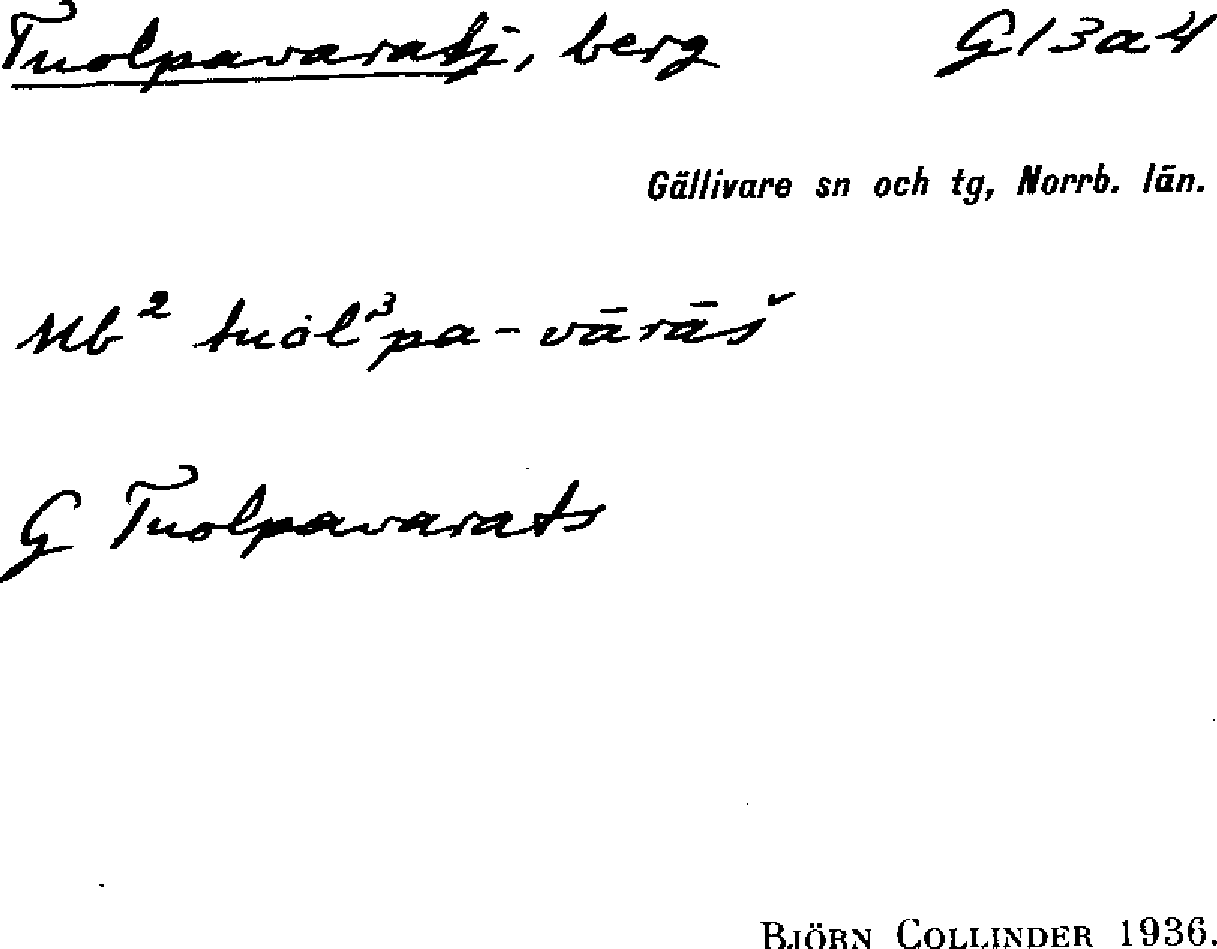 Tuolpavaratj, berg G13a4
Gällivare sn och tg, Norrb. län.
Mb² tuȯl³pa-vārāš
G Tuolpavarats
BJÖRN COLLINDER 1936.